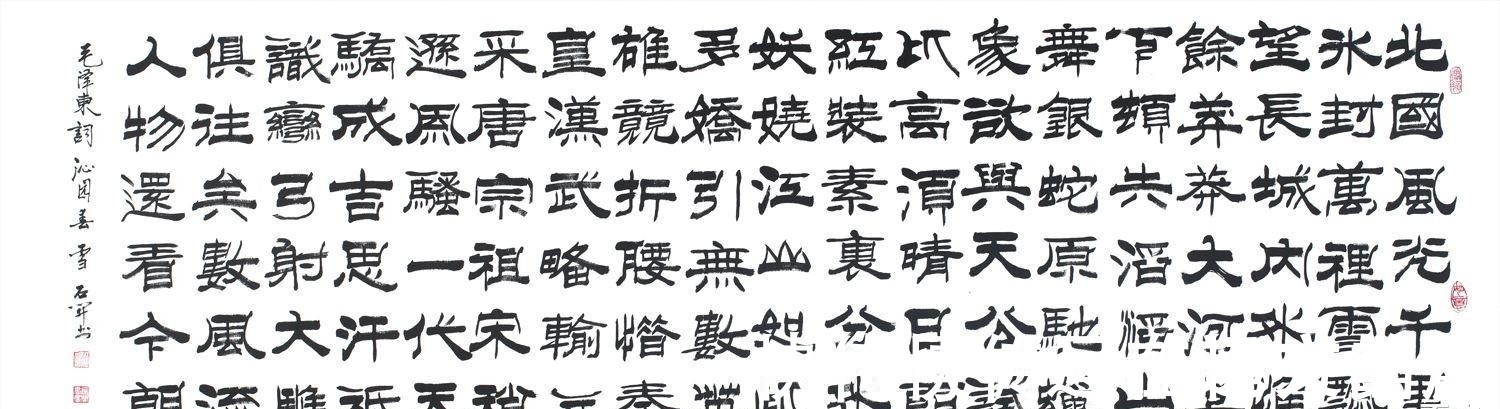 北國風光千里
氷封萬裡雪飄
望長城內外惟
餘莽莽大河
下頓失滔滔山
舞銀蛇原馳蠟
象欲與天公試
比高須晴日
紅裝素裹分外
妖嬈江山如此
多嬌引無數
雄競折腰惜秦
皇漢武略輸
采唐宗祖宋稍
遜風騷一代天
驕成吉思汗祇
識彎弓射大雕
俱往矣數風流
人物還看今朝
毛澤東詞沁園春雪 石軍书